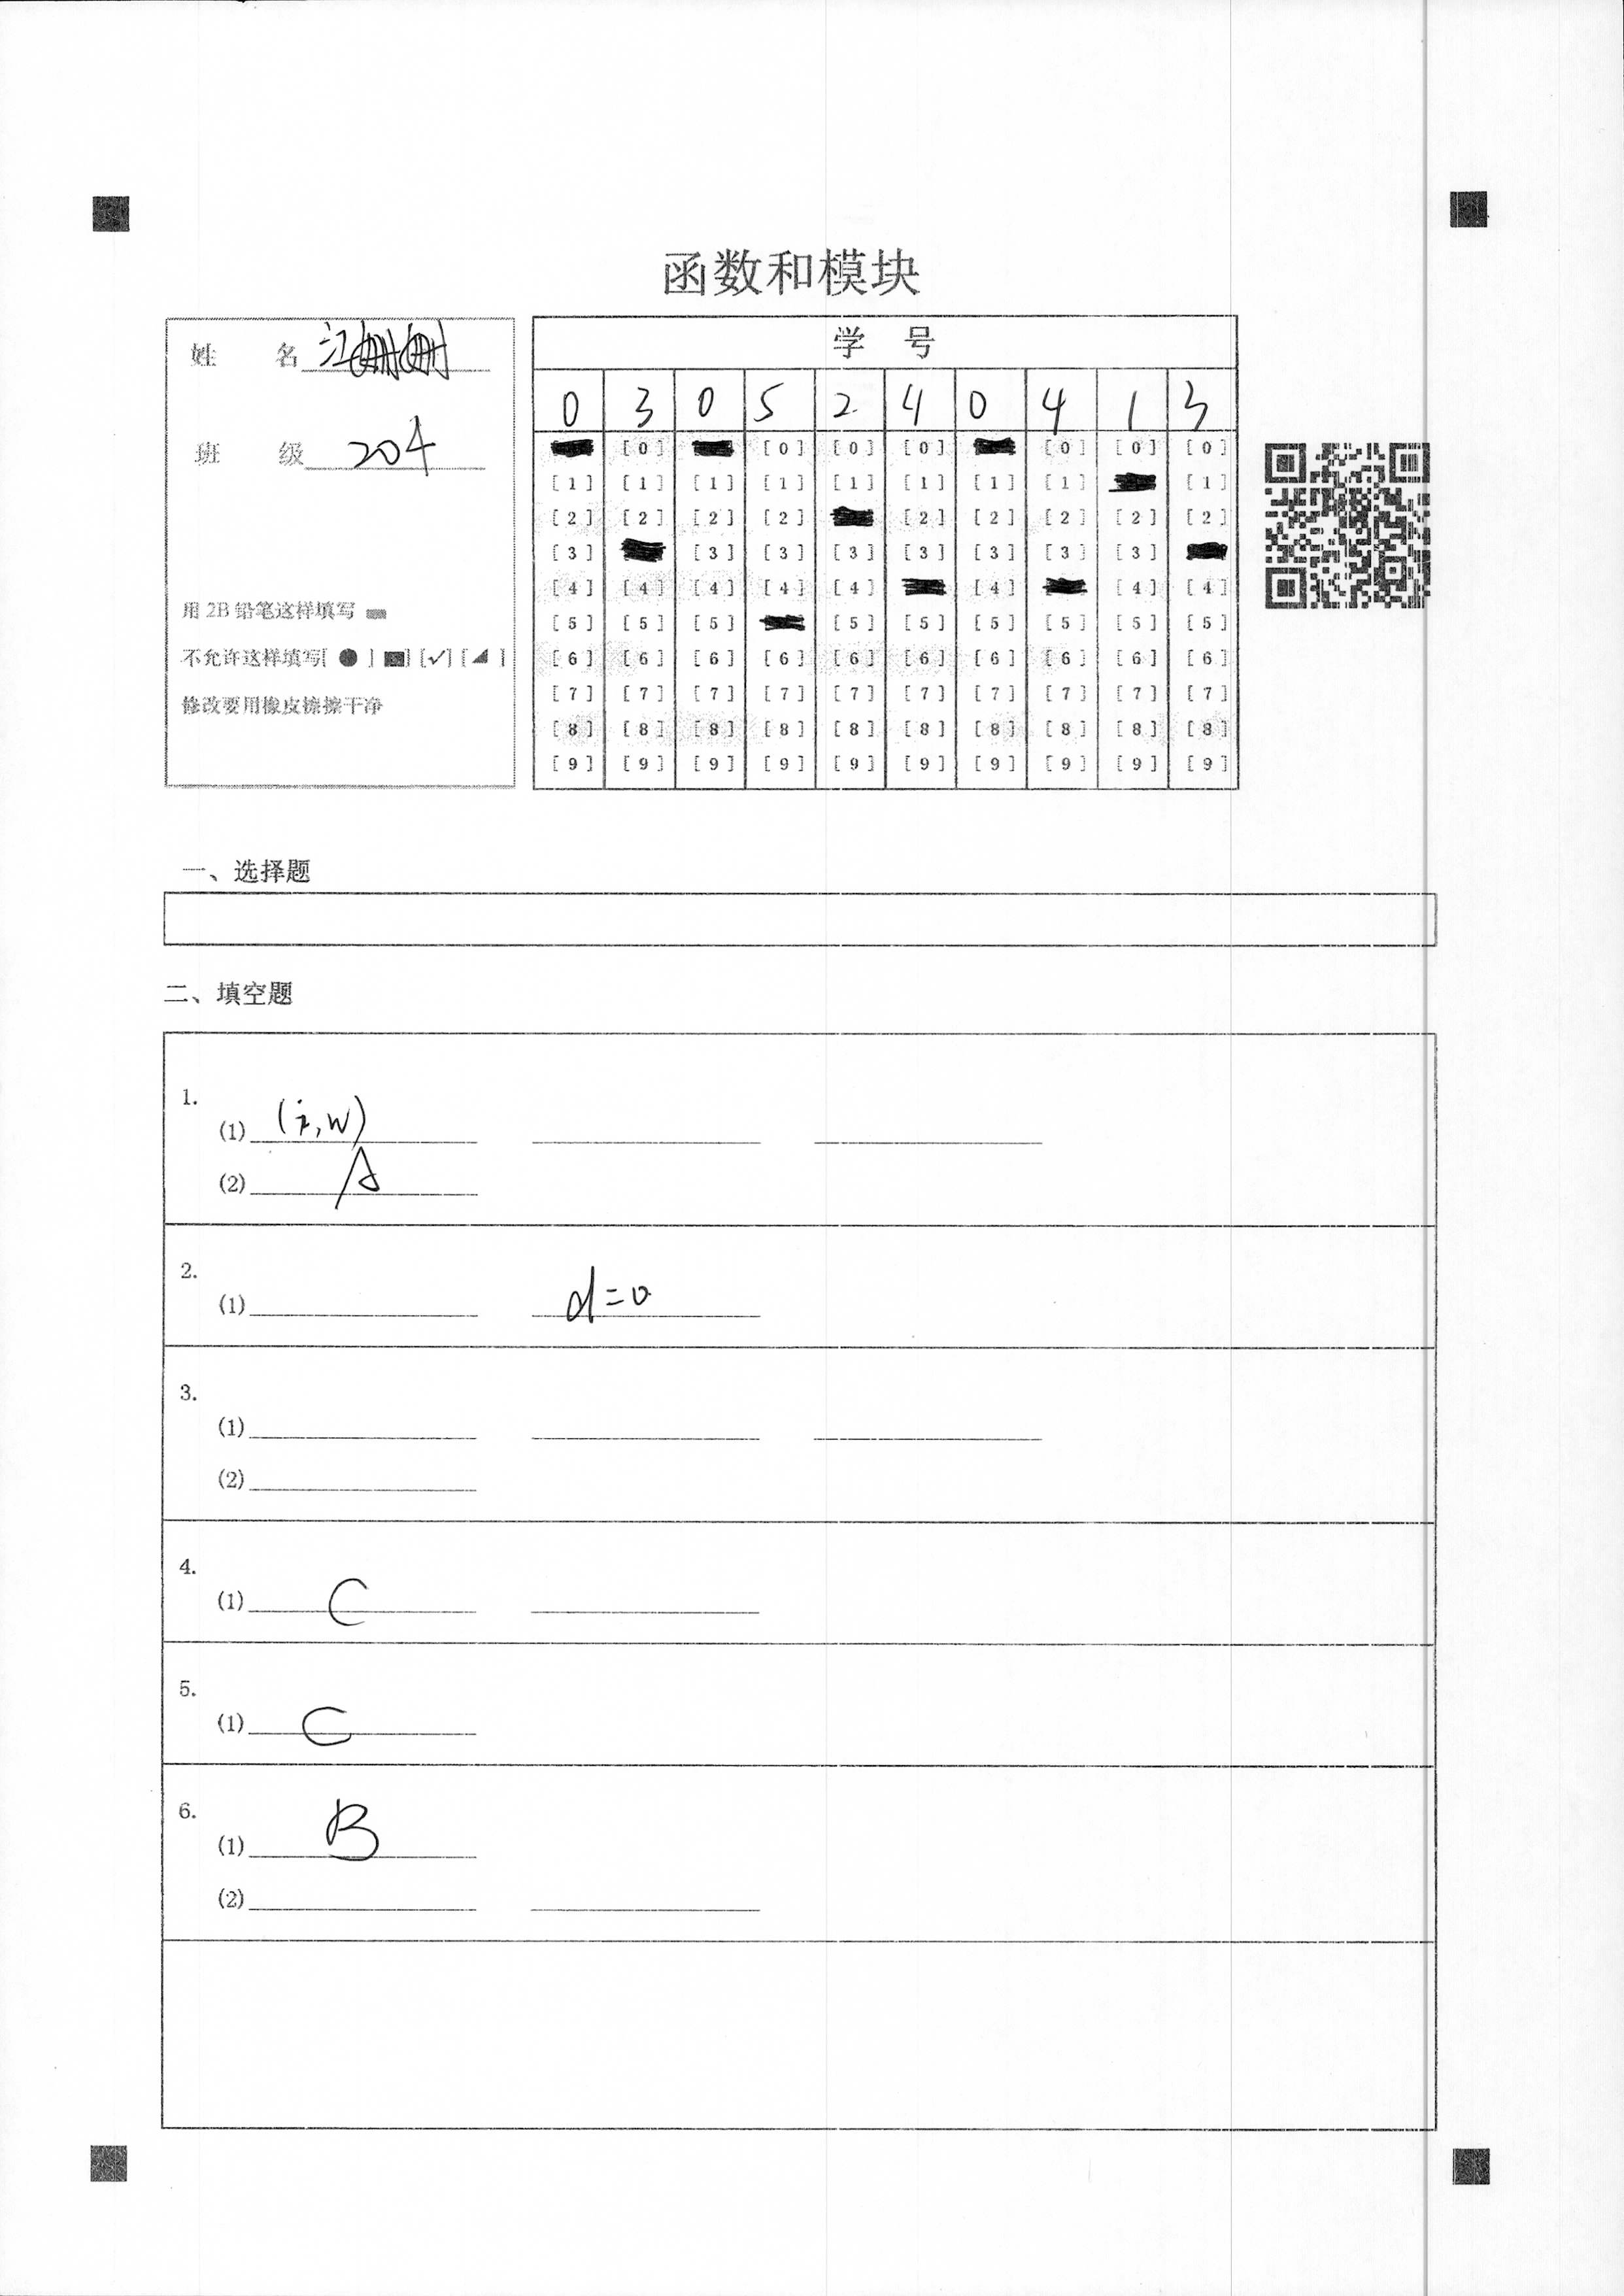 函数和模块
姓 名 江姗姗
班 级 204
用 2B 铅笔这样填写
不允许这样填写[ ● ] [■] [✓] [◢ ]
修改要用橡皮擦擦干净
学 号
0 3 0 5 2 4 0 4 1 3
[0] [0] [0] [0] [0] [0] [0]
[1] [1] [1] [1] [1] [1] [1] [1] [1]
[2] [2] [2] [2] [2] [2] [2] [2] [2]
[3] [3] [3] [3] [3] [3] [3] [3]
[4] [4] [4] [4] [4] [4] [4] [4]
[5] [5] [5] [5] [5] [5] [5] [5] [5]
[6] [6] [6] [6] [6] [6] [6] [6] [6] [6]
[7] [7] [7] [7] [7] [7] [7] [7] [7] [7]
[8] [8] [8] [8] [8] [8] [8] [8] [8] [8]
[9] [9] [9] [9] [9] [9] [9] [9] [9] [9]
一、选择题
二、填空题
1.
(1) (i,w)
(2) A
2.
(1) d=0
3.
(1)
(2)
4.
(1) C
5.
(1) C
6.
(1) B
(2)